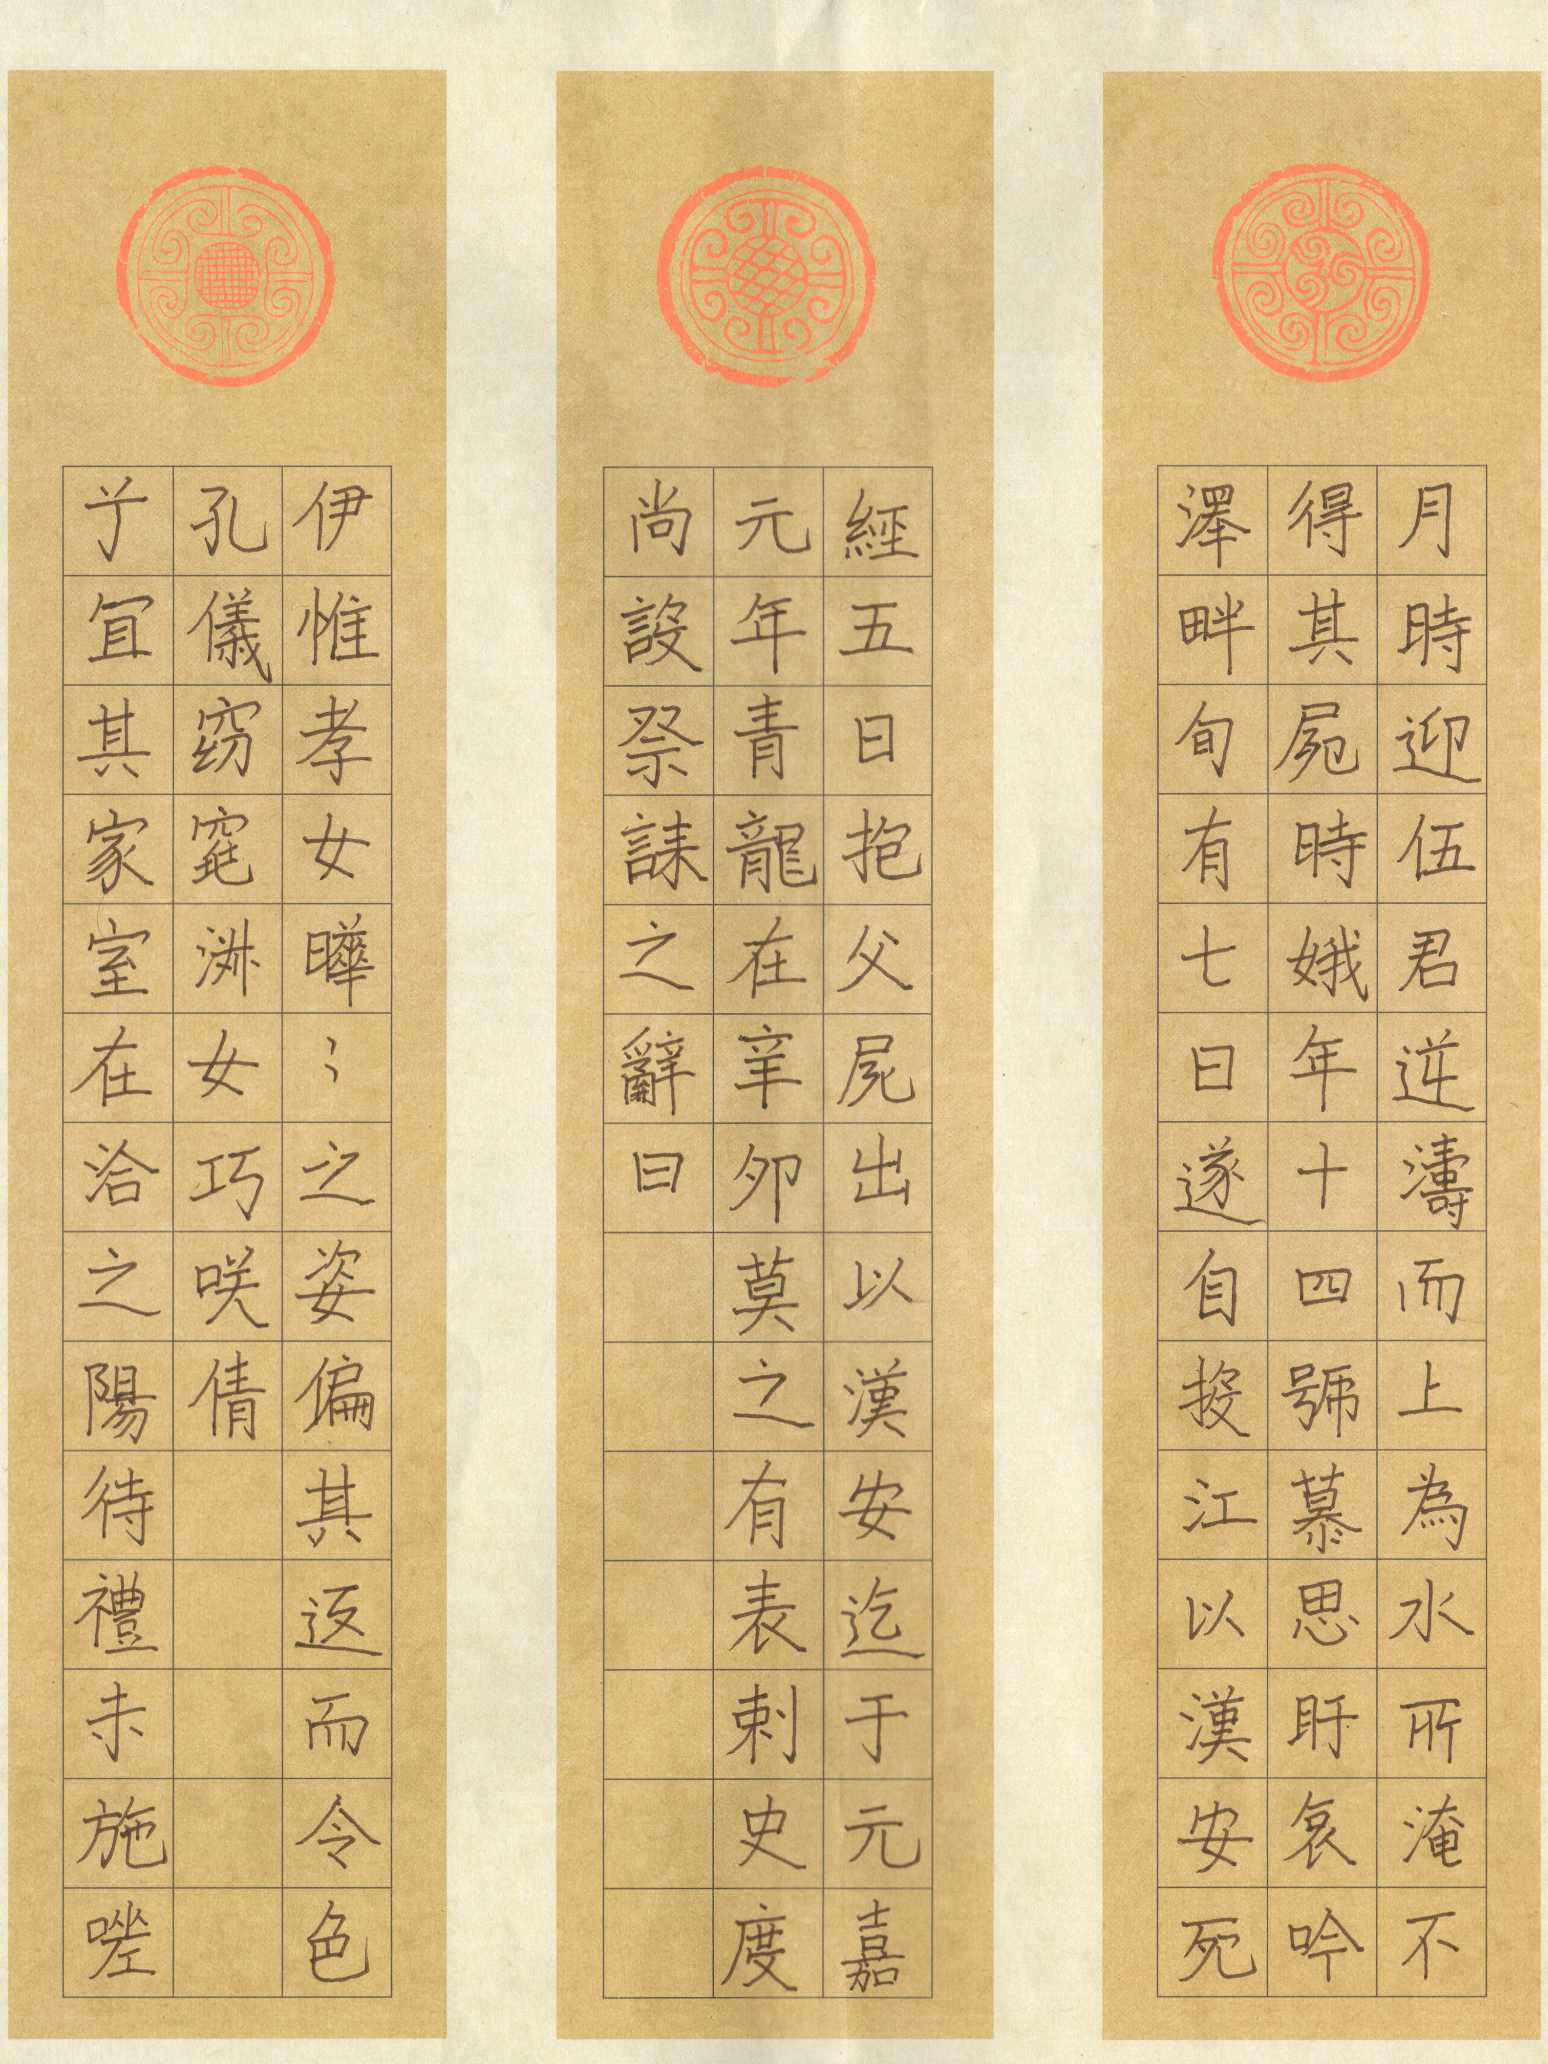 月時迎伍君逆濤而上為水所淹不
得其屍時娥年十四號慕思盱哀吟
澤畔旬有七日遂自投江以漢安死
經五日抱父屍出以漢安迄于元嘉
元年青龍在辛卯莫之有表刺史度
尚設祭誄之辭曰
伊惟孝女曄〻之姿偏其返而令色
孔儀窈窕淑女巧咲倩
兮宜其家室在洽之陽待禮未施嗟